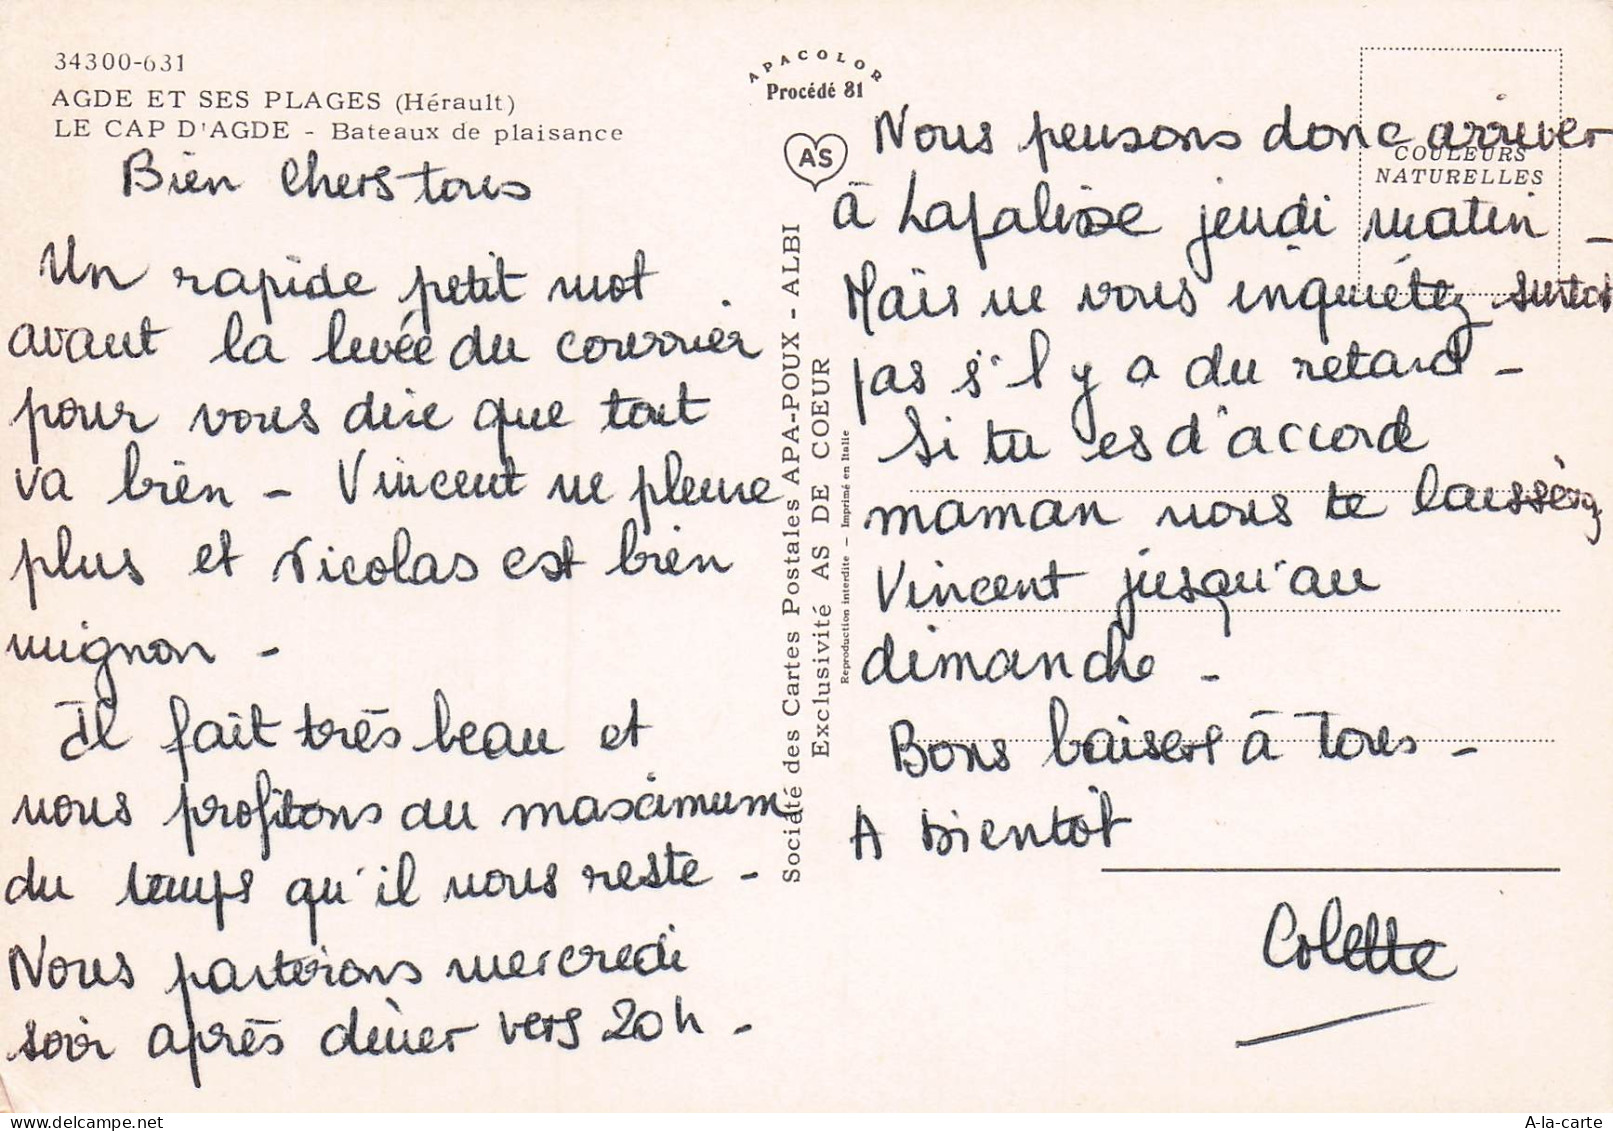 34300-631
AGDE ET SES PLAGES (Hérault)
LE CAP D'AGDE - Bateaux de plaisance
Bien chers tous
Un rapide petit mot
avant la levée du courrier
pour vous dire que tout
va bien - Vincent ne pleure
plus et Nicolas est bien
mignon -
Il fait très beau et
nous profitons au maximum
du temps qu'il nous reste -
Nous partirons mercredi
soir après dîner vers 20h -
APACOLOR
Procédé 81
AS
Société des Cartes Postales APA-POUX - ALBI
Exclusivité AS DE COEUR
Reproduction interdite - Imprimé en Italie
COULEURS
NATURELLES
Nous pensons donc arriver
à Lapalisse jeudi matin -
Mais ne vous inquiétez surtout
pas s'il y a du retard -
Si tu es d'accord
maman nous te laisserons
Vincent jusqu'au
dimanche -
Bons baisers à Tous -
A Bientôt
Colette
A-la-carte